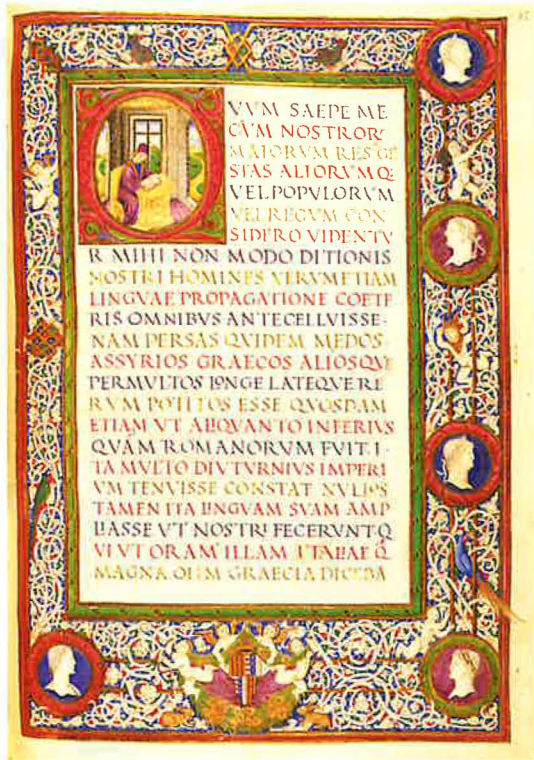 VVM SAEPE ME
CVM NOSTROR
MAIORVM RES GE
STAS ALIORVMQ
VEL POPVLORVM
VEL REGVM CON
SIDERO VIDENTV
R MIHI NON MODO DITIONIS
NOSTRI HOMINES VERVM ETIAM
LINGVAE PROPAGATIONE COETE
RIS OMNIBVS ANTECELLVISSE
NAM PERSAS QVIDEM MEDOS
ASSYRIOS GRAECOS ALIOSQVE
PERMVLTOS LONGE LATEQVE RE
RVM POTITOS ESSE QVOSDAM
ETIAM VT ALIQVANTO INFERIVS
QVAM ROMANORVM FVIT I
TA MVLTO DIVTVRNIVS IMPERI
VM TENVISSE CONSTAT NVLLOS
TAMEN ITA LINGVAM SVAM AMP
LIASSE VT NOSTRI FECERVNT Q
VI VT ORAM ILLAM ITALIAE Q
MAGNA OLIM GRAECIA DICEBA